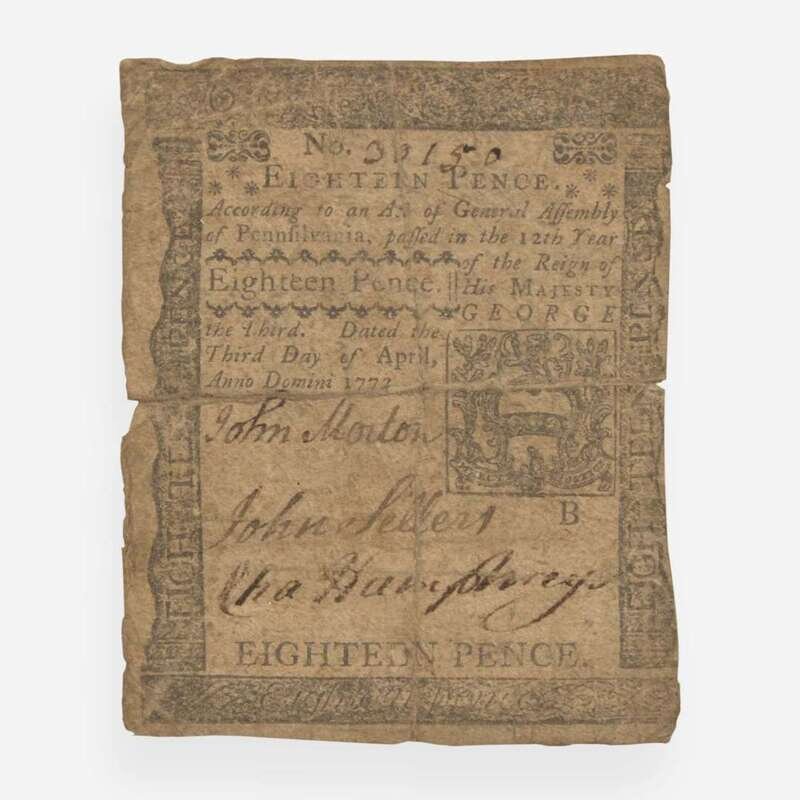 No. 33150
EIGHTEEN PENCE.
According to an Act of General Aſſembly
of Pennſilvania, paſſed in the 12th Year
of the Reign of
Eighteen Pence.
His MAJESTY
GEORGE
the Third. Dated the
Third Day of April,
Anno Domini 1772
John Morton
John Sellers
Cha Humphreys
B
EIGHTEEN PENCE.
Eighteen Pence
EIGHTEEN PENCE
EIGHTEEN PENCE